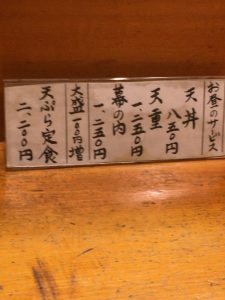 お昼のサービス
天丼
八五〇円
天重
一、二五〇円
幕の内
一、二五〇円
大盛一〇〇円増
天ぷら定食
二、二〇〇円